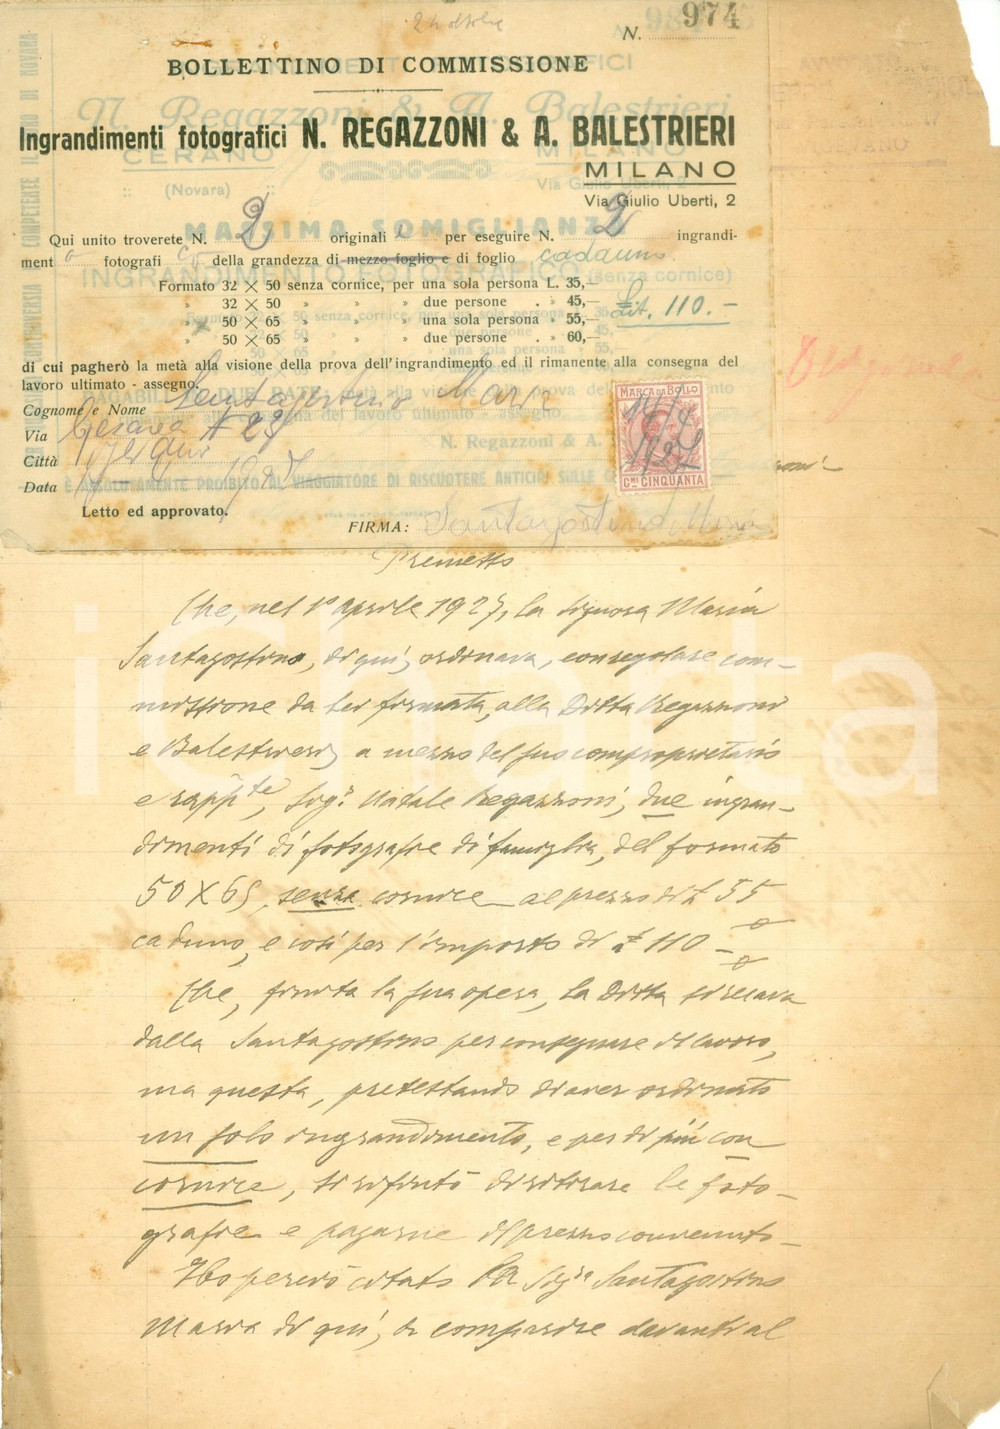 24 ottobre
N. 974
BOLLETTINO DI COMMISSIONE
Ingrandimenti fotografici N. REGAZZONI & A. BALESTRIERI
MILANO
Via Giulio Uberti, 2
Qui unito troverete N. 2 originali per eseguire N. 2 ingrandi-
ment o fotografi ci della grandezza di mezzo foglio e di foglio cadauno
Formato 32 × 50 senza cornice, per una sola persona L. 35,—
» 32 × 50 » » » due persone . » 45,—
Lit. 110.-
» 50 × 65 » » » una sola persona » 55,—
» 50 × 65 » » » due persone . » 60,—
di cui pagherò la metà alla visione della prova dell'ingrandimento ed il rimanente alla consegna del
lavoro ultimato - assegno.
Cognome e Nome Santagostino Maria
Via Cesarea N 23
Città
Data 1927
MARCA DA BOLLO
14/4
1927
Cmi CINQUANTA
Letto ed approvato.
FIRMA: Santagostino Maria
Premesso
Che, nel 1° aprile 1927, la signora Maria
Santagostino, di qui, ordinava, con regolare com-
missione da lei firmata, alla Ditta Regazzoni
e Balestrieri, a mezzo del suo comproprietario
e rappte, Sigr Natale Regazzoni, due ingran-
dimenti di fotografie di famiglia, del formato
50 X 65, senza cornice al prezzo di £ 55
caduno, e così per l'importo di £ 110 -
Che, finita la sua opera, la Ditta si recava
dalla Santagostino per consegnare il lavoro,
ma questa, pretestando di aver ordinato
un solo ingrandimento, e per di più con
cornice, si rifiutò di ritirare le foto-
grafie e pagarne il prezzo convenuto -
Ho perciò citato la Sigra Santagostino
Maria di qui, a comparire davanti al